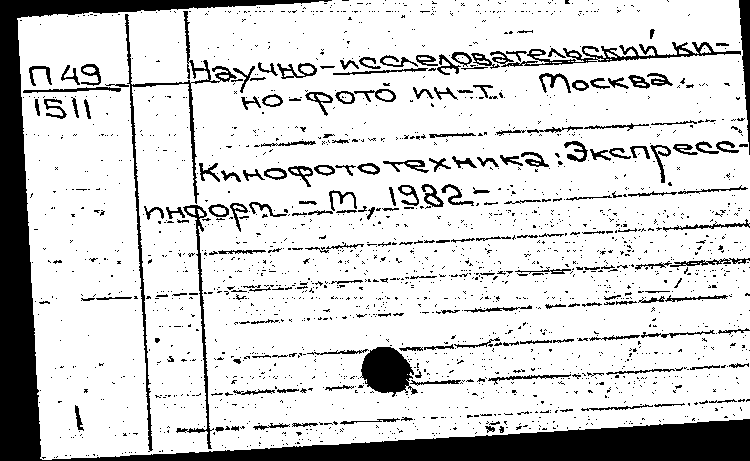 П 49
1511
Научно-исследовательский ки-
но-фото ин-т. Москва.
Кинофототехника: Экспресс-
информ. – М., 1982 –
1